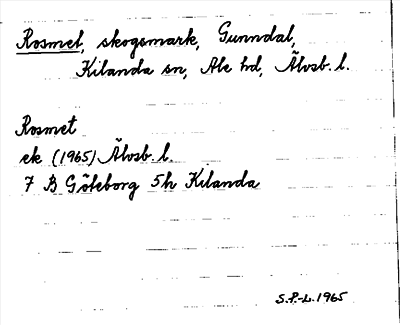 Rosmet, skogsmark, Gunndal,
Kilanda sn, Ale hd, Älvsb. l.
Rosmet
ek (1965) Älvsb. l.
7 B Göteborg 5h Kilanda
S.P.-L. 1965